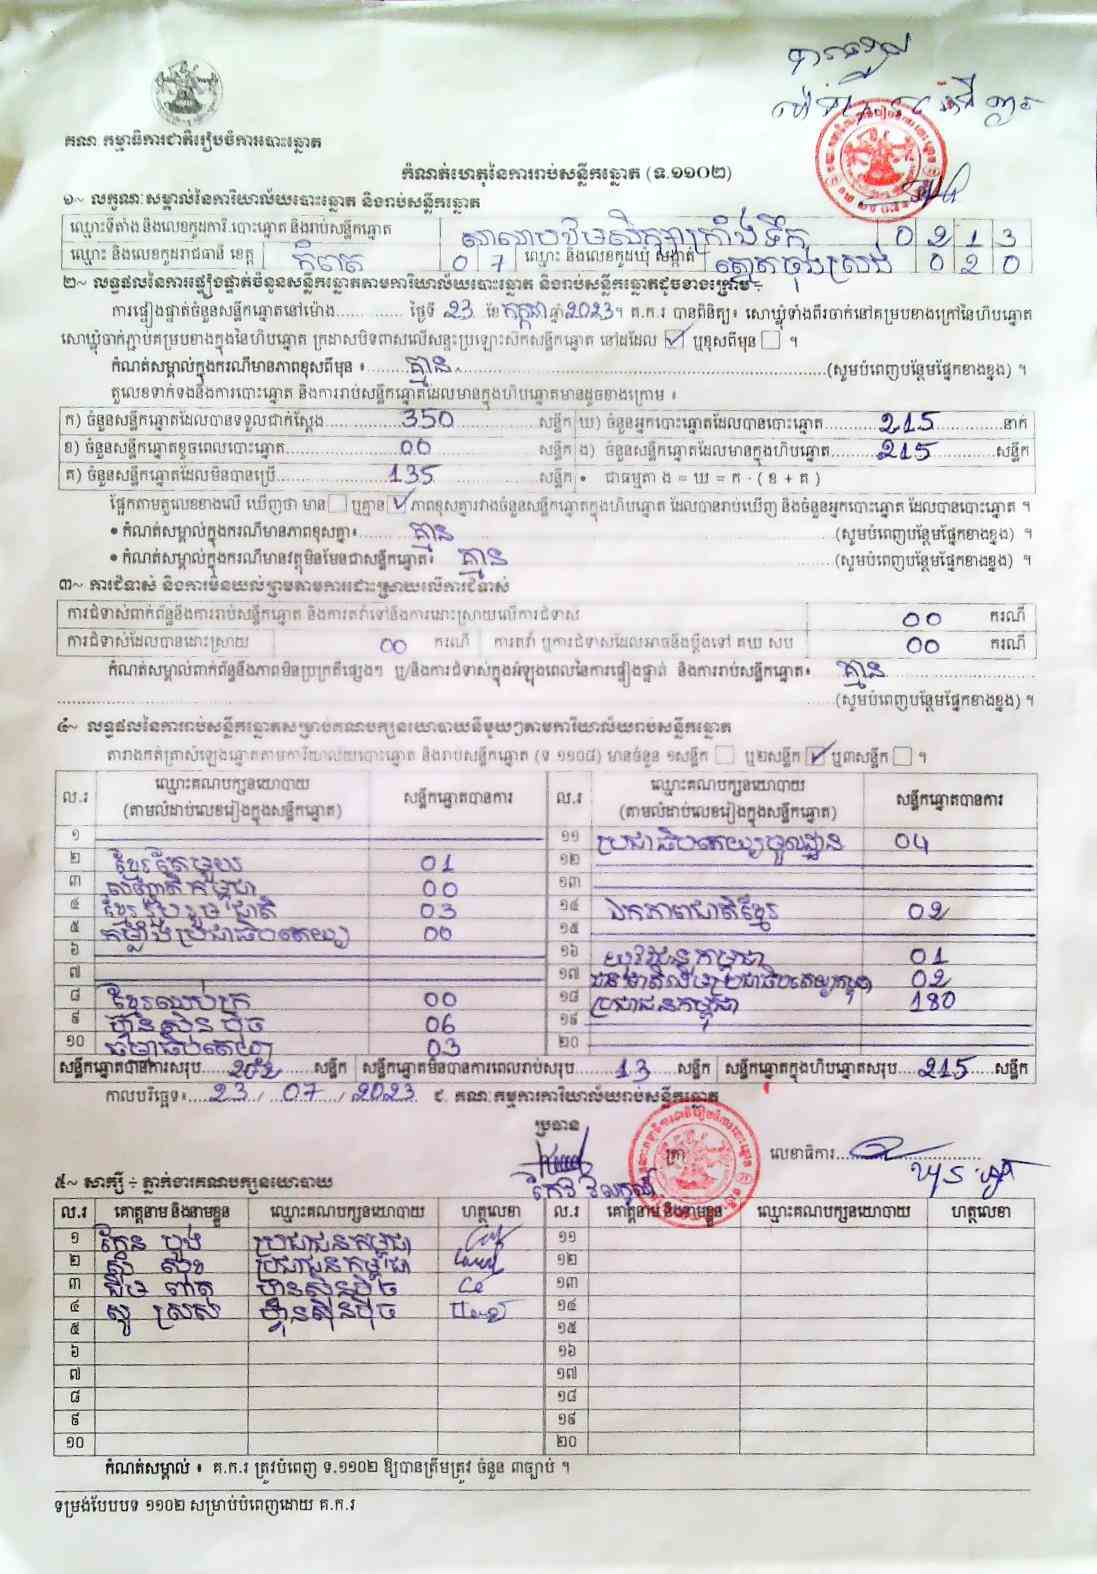 គណៈកម្មាធិការជាតិរៀបចំការបោះឆ្នោត
កំណត់ហេតុនៃការរាប់សន្លឹកឆ្នោត (ទ.១១០២)
១~ លក្ខណៈសម្គាល់នៃការិយាល័យបោះឆ្នោត និងរាប់សន្លឹកឆ្នោត
ឈ្មោះទីតាំង និងលេខកូដការិ.បោះឆ្នោត និងរាប់សន្លឹកឆ្នោត សាលាបឋមសិក្សាក្រាំងទឹក 0 2 1 3
ឈ្មោះ និងលេខកូដរាជធានី ខេត្ត កំពត 0 7 ឈ្មោះ និងលេខកូដឃុំ សង្កាត់ ត្នោតចុងស្រង់ 0 2 0
២~ លទ្ធផលនៃការផ្ទៀងផ្ទាត់ចំនួនសន្លឹកឆ្នោតតាមការិយាល័យបោះឆ្នោត និងរាប់សន្លឹកឆ្នោតដូចខាងក្រោម ÷
ការផ្ទៀងផ្ទាត់ចំនួនសន្លឹកឆ្នោតនៅម៉ោង.............. ថ្ងៃទី 23 ខែ កក្កដា ឆ្នាំ 2023។ គ.ក.រ បានពិនិត្យ៖ សោឃ្លុំទាំងពីរចាក់នៅគម្របខាងក្រៅនៃហិបឆ្នោត
សោឃ្លុំចាក់ភ្ជាប់គម្របខាងក្នុងនៃហិបឆ្នោត ក្រដាសបិទពាសលើសន្ទះប្រឡោះសិកសន្លឹកឆ្នោត នៅដដែល ☑ ឬខុសពីមុន ☐ ។
កំណត់សម្គាល់ក្នុងករណីមានភាពខុសពីមុន ៖ គ្មាន (សូមបំពេញបន្ថែមផ្នែកខាងខ្នង) ។
តួលេខទាក់ទងនឹងការបោះឆ្នោត និងការរាប់សន្លឹកឆ្នោតដែលមានក្នុងហិបឆ្នោតមានដូចខាងក្រោម ៖
ក) ចំនួនសន្លឹកឆ្នោតដែលបានទទួលជាក់ស្ដែង 350 សន្លឹក ឃ) ចំនួនអ្នកបោះឆ្នោតដែលបានបោះឆ្នោត 215 នាក់
ខ) ចំនួនសន្លឹកឆ្នោតខូចពេលបោះឆ្នោត 00 សន្លឹក ង) ចំនួនសន្លឹកឆ្នោតដែលមានក្នុងហិបឆ្នោត 215 សន្លឹក
គ) ចំនួនសន្លឹកឆ្នោតដែលមិនបានប្រើ 135 សន្លឹក • ជាធម្មតា ង = ឃ = ក - ( ខ + គ )
ផ្អែកតាមតួលេខខាងលើ ឃើញថា មាន ☐ ឬគ្មាន ☑ ភាពខុសគ្នារវាងចំនួនសន្លឹកឆ្នោតក្នុងហិបឆ្នោត ដែលបានរាប់ឃើញ និងចំនួនអ្នកបោះឆ្នោត ដែលបានបោះឆ្នោត ។
• កំណត់សម្គាល់ក្នុងករណីមានភាពខុសគ្នា៖ គ្មាន (សូមបំពេញបន្ថែមផ្នែកខាងខ្នង) ។
• កំណត់សម្គាល់ក្នុងករណីមានវត្ថុមិនមែនជាសន្លឹកឆ្នោត៖ គ្មាន (សូមបំពេញបន្ថែមផ្នែកខាងខ្នង) ។
៣~ ការជំទាស់ និងការមិនយល់ព្រមតាមការដោះស្រាយលើការជំទាស់
ការជំទាស់ពាក់ព័ន្ធនឹងការរាប់សន្លឹកឆ្នោត និងការតវ៉ាទៅនឹងការដោះស្រាយលើការជំទាស់ 00 ករណី
ការជំទាស់ដែលបានដោះស្រាយ 00 ករណី ការតវ៉ា ឬការជំទាស់ដែលអាចនឹងប្ដឹងទៅ គឃ.សប 00 ករណី
កំណត់សម្គាល់ពាក់ព័ន្ធនឹងភាពមិនប្រក្រតីផ្សេងៗ ឬ/និងការជំទាស់ក្នុងអំឡុងពេលនៃការផ្ទៀងផ្ទាត់ និងការរាប់សន្លឹកឆ្នោត៖ គ្មាន
(សូមបំពេញបន្ថែមផ្នែកខាងខ្នង) ។
៤~ លទ្ធផលនៃការរាប់សន្លឹកឆ្នោតសម្រាប់គណបក្សនយោបាយនីមួយៗតាមការិយាល័យរាប់សន្លឹកឆ្នោត
តារាងកត់ត្រាសំឡេងឆ្នោតតាមការិយាល័យបោះឆ្នោត និងរាបសន្លឹកឆ្នោត (ទ ១១០៨) មានចំនួន ១សន្លឹក ☐ ឬ២សន្លឹក ☑ ឬ៣សន្លឹក ☐ ។
ល.រ ឈ្មោះគណបក្សនយោបាយ (តាមលំដាប់លេខរៀងក្នុងសន្លឹកឆ្នោត) សន្លឹកឆ្នោតបានការ ល.រ ឈ្មោះគណបក្សនយោបាយ (តាមលំដាប់លេខរៀងក្នុងសន្លឹកឆ្នោត) សន្លឹកឆ្នោតបានការ
១ ១១ ប្រជាធិបតេយ្យមូលដ្ឋាន 04
២ ខ្មែរតែមួយ 01 ១២
៣ សញ្ជាតិកម្ពុជា 00 ១៣
៤ ខ្មែររួបរួមជាតិ 03 ១៤ ឯកភាពជាតិខ្មែរ 02
៥ កម្លាំងប្រជាធិបតេយ្យ 00 ១៥
៦ ១៦ យុវជនកម្ពុជា 01
៧ ១៧ ជនជាតិដើមប្រជាធិបតេយ្យកម្ពុជា 02
៨ ខ្មែរឈប់ក្រ 00 ១៨ ប្រជាជនកម្ពុជា 180
៩ ហ៊្វុនស៊ិនប៉ិច 06 ១៩
១០ ធម្មាធិបតេយ្យ 03 ២០
សន្លឹកឆ្នោតបានការសរុប 202 សន្លឹក សន្លឹកឆ្នោតមិនបានការពេលរាប់សរុប 13 សន្លឹក សន្លឹកឆ្នោតក្នុងហិបឆ្នោតសរុប 215 សន្លឹក
កាលបរិច្ឆេទ៖ 23 / 07 / 2023 ជ. គណៈកម្មការការិយាល័យរាប់សន្លឹកឆ្នោត
ប្រធាន
ត្រា លេខាធិការ
៥~ សាក្សី ÷ ភ្នាក់ងារគណបក្សនយោបាយ
ល.រ គោត្តនាម និងនាមខ្លួន ឈ្មោះគណបក្សនយោបាយ ហត្ថលេខា ល.រ គោត្តនាម និងនាមខ្លួន ឈ្មោះគណបក្សនយោបាយ ហត្ថលេខា
១ កែន ប្រជាជនកម្ពុជា ១១
២ ប្រជាជនកម្ពុជា ១២
៣ ហ៊្វុនស៊ិនប៉ិច ១៣
៤ ស្រស់ ហ៊្វុនស៊ិនប៉ិច ១៤
៥ ១៥
៦ ១៦
៧ ១៧
៨ ១៨
៩ ១៩
១០ ២០
កំណត់សម្គាល់ ៖ គ.ក.រ ត្រូវបំពេញ ទ.១១០២ ឱ្យបានត្រឹមត្រូវ ចំនួន ៣ច្បាប់ ។
ទម្រង់បែបបទ ១១០២ សម្រាប់បំពេញដោយ គ.ក.រ